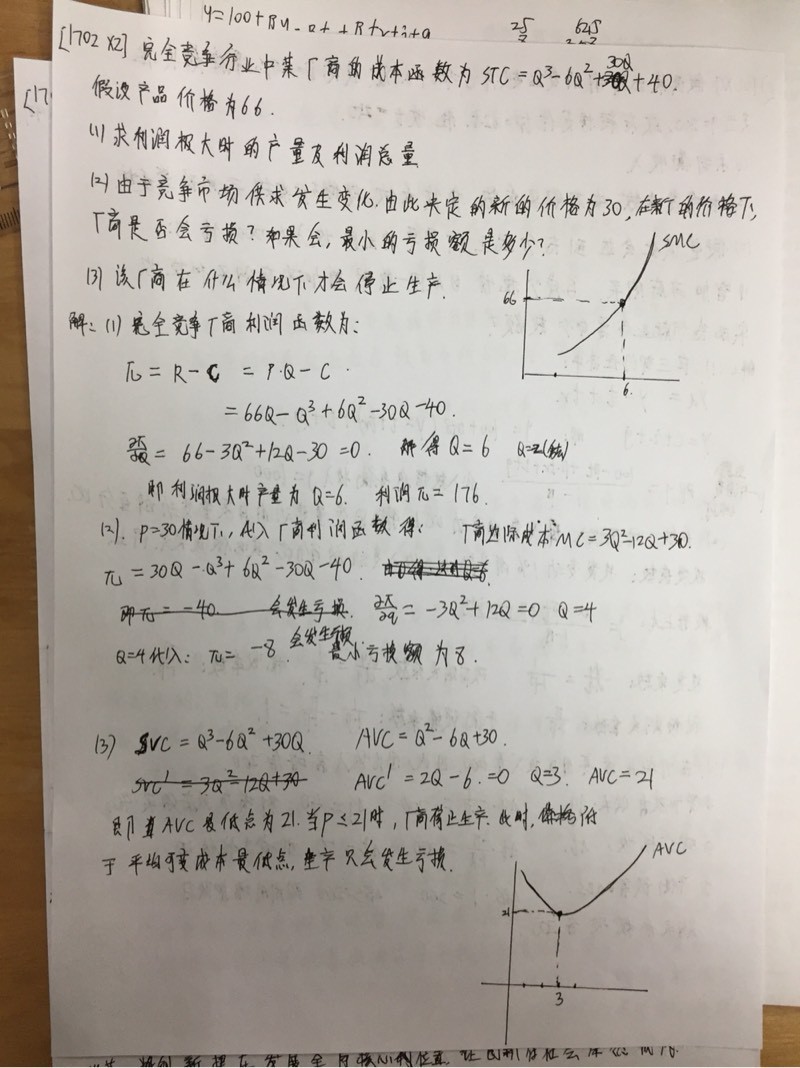 y=100+
25 625
[1702 X2] 完全竞争行业中某厂商的成本函数为 STC = Q³-6Q²+30Q+40.
假设产品价格为66.
(1) 求利润极大时的产量及利润总量
(2) 由于竞争市场供求发生变化.由此决定的新的价格为30,在新的价格下,
厂商是否会亏损?如果会,最小的亏损额是多少?
(3) 该厂商在什么情况下才会停止生产.
SMC
66
6
解: (1) 完全竞争厂商利润函数为:
π = R-C = P·Q-C.
= 66Q-Q³+6Q²-30Q-40.
∂π/∂Q = 66-3Q²+12Q-30=0. 即得Q=6
即利润极大时产量为Q=6. 利润π=176.
(2). P=30情况下,代入厂商利润函数得: 厂商边际成本MC=3Q²-12Q+30.
π = 30Q-Q³+6Q²-30Q-40.
即π=-40. 会发生亏损. ∂π/∂q = -3Q²+12Q=0 Q=4
Q=4代入: π=-8 会发生亏损. 最小亏损额为8.
(3) SVC = Q³-6Q²+30Q. AVC=Q²-6Q+30.
SVC' = 3Q²-12Q+30 AVC' = 2Q-6.=0 Q=3. AVC=21
即AVC最低点为21.当P≤21时,厂商停止生产.此时,价格低
于平均可变成本最低点,生产只会发生亏损.
AVC
21
3